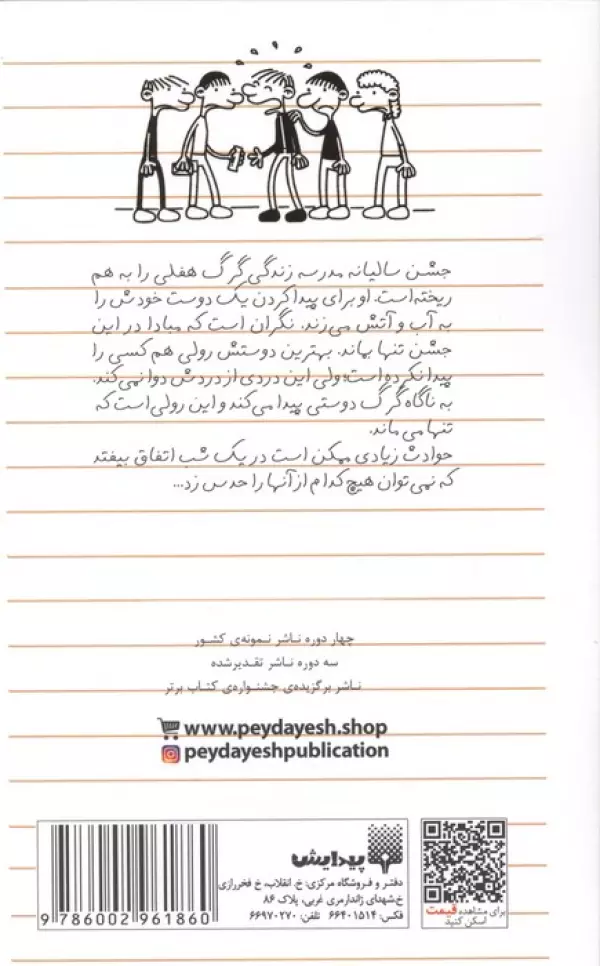 جشن سالیانه مدرسه زندگی گرگ هفلی را به هم
ریخته است. او برای پیدا کردن یک دوست خودش را
به آب و آتش می‌زند. نگران است که مبادا در این
جشن تنها بماند. بهترین دوستش رولی هم کسی را
پیدا نکرده است؛ ولی این دردی از دردش دوا نمی‌کند.
به ناگاه گرگ دوستی پیدا می‌کند و این رولی است که
تنها می‌ماند.
حوادث زیادی ممکن است در یک شب اتفاق بیفتد
که نمی‌توان هیچ کدام از آنها را حدس زد...
چهار دوره ناشر نمونه‌ی کشور
سه دوره ناشر تقدیرشده
ناشر برگزیده‌ی جشنواره‌ی کتاب برتر
www.peydayesh.shop
peydayeshpublication
پیدایش
دفتر و فروشگاه مرکزی: خ. انقلاب، خ فخررازی
خ شهدای ژاندارمری غربی، پلاک ۸۶
فکس: ۶۶۴۰۱۵۱۴ تلفن: ۶۶۹۷۰۲۷۰
برای مشاهده قیمت
اسکن کنید
9 786002 961860